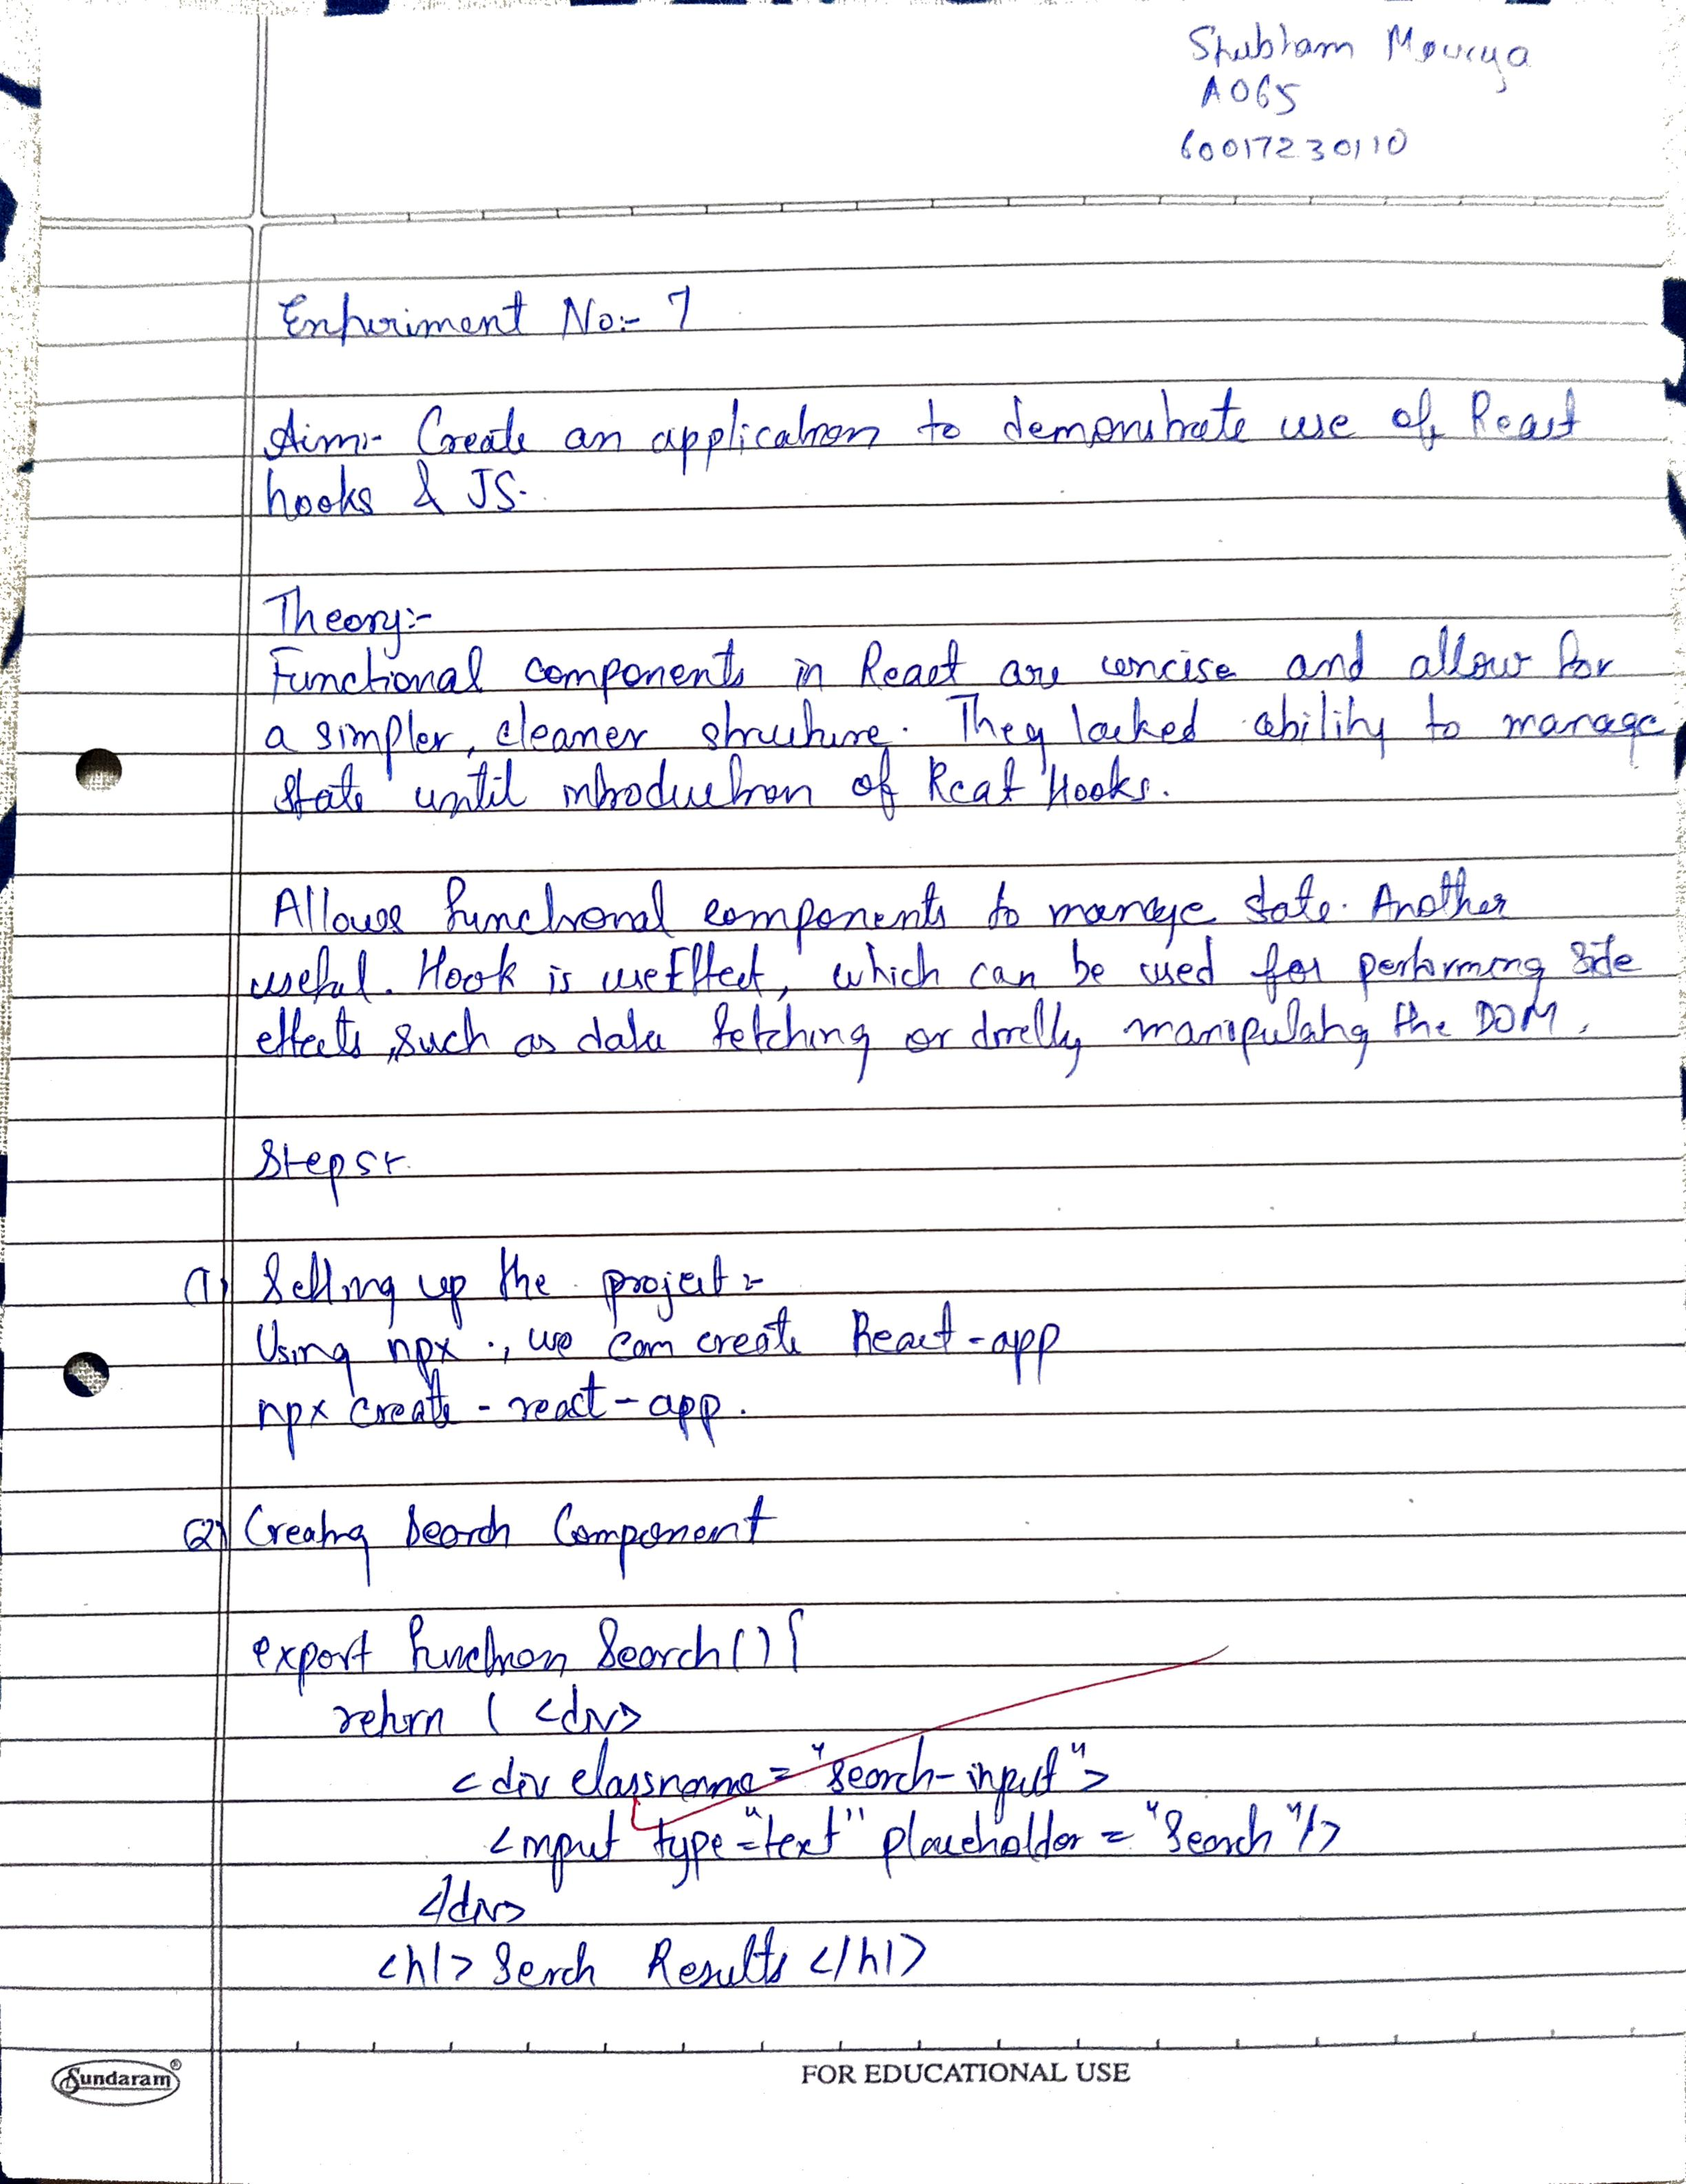 Shubham Mourya
A065
60017230110
Experiment No:- 7
Aim:- Create an application to demonstrate use of React
hooks & JS.
Theory:-
Functional components in React are concise and allow for
a simpler, cleaner structure. They lacked ability to manage
state until introduction of Reat Hooks.
Allows functional components to manage state. Another
useful. Hook is useEffect, which can be used for performing side
effects, such as data fetching or directly manipulating the DOM.
Steps:-
(1) Setting up the project:-
Using npx, we can create React-app
npx create-react-app.
(2) Creating Search Component
export function Search(){
return ( <div>
<div classname="search-input">
<input type="text" placeholder="Search"/>
</div>
<h1> Serch Results </h1>
Sundaram®
FOR EDUCATIONAL USE